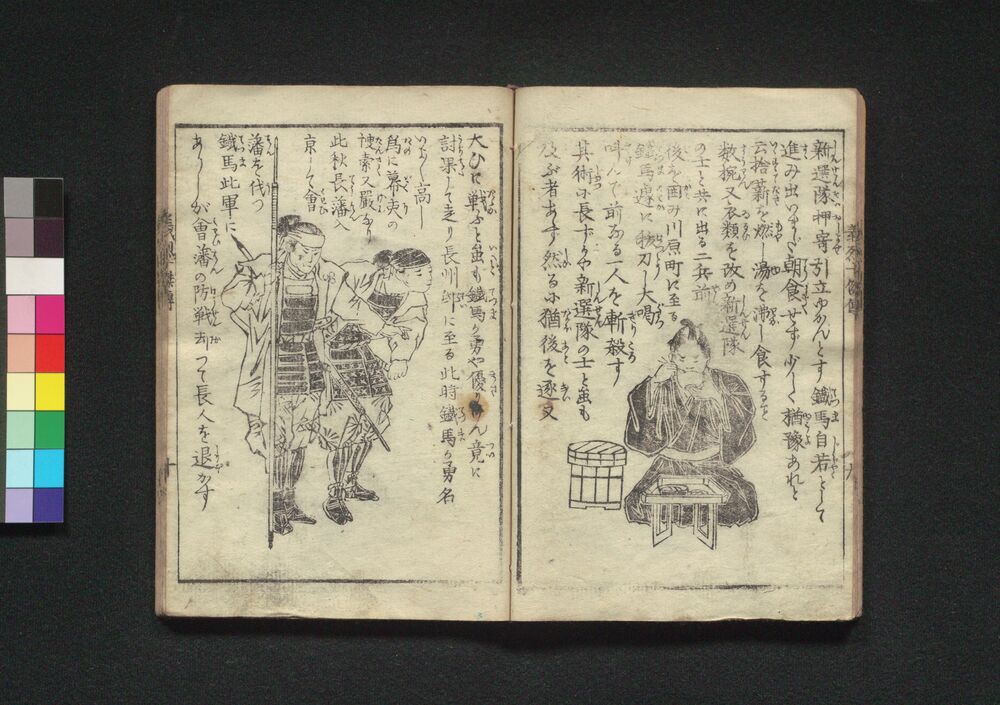 新選隊押寄引立ゆかんとす鐵馬自若として
進み出いまだ朝食せず少しく猶豫あれと
云捨薪を燃湯を沸し食する
数椀又衣類を改め新選隊
の士と共に出る二兵前
後を囲み川原町に至る
鐵馬遽に抜刀し大喝
叫んで前なる一人を斬殺す
其術に長ずるや新選隊の士と虽も
及ぶ者あらず然るに猶後を逐又
大ひに戦ふと虽も鐵馬の勇や優りけん竟に
討果して走り長州邸に至る此時鐵馬の勇名
いよ〱高し
為に幕吏の
捜索又嚴なり
此秋長藩入
京して會
藩を伐つ
鐵馬此軍に
ありしが會藩の防戦却つて長人を退かす